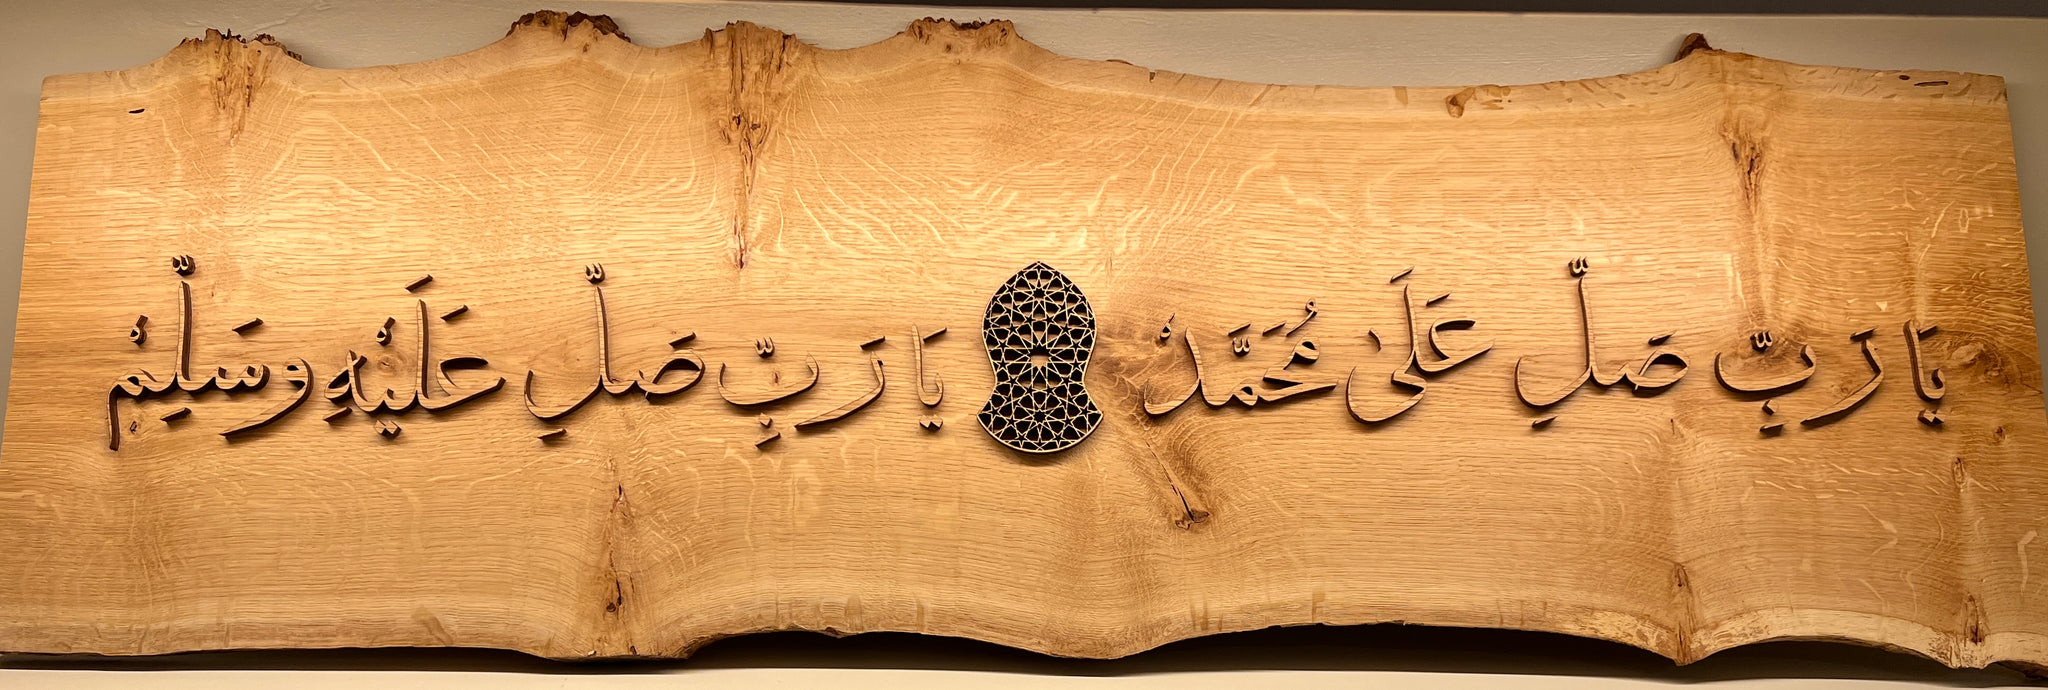 يَا رَبِّ صَلِّ عَلَىٰ مُحَمَّدْ يَا رَبِّ صَلِّ عَلَيْهِ وَسَلِّمْ